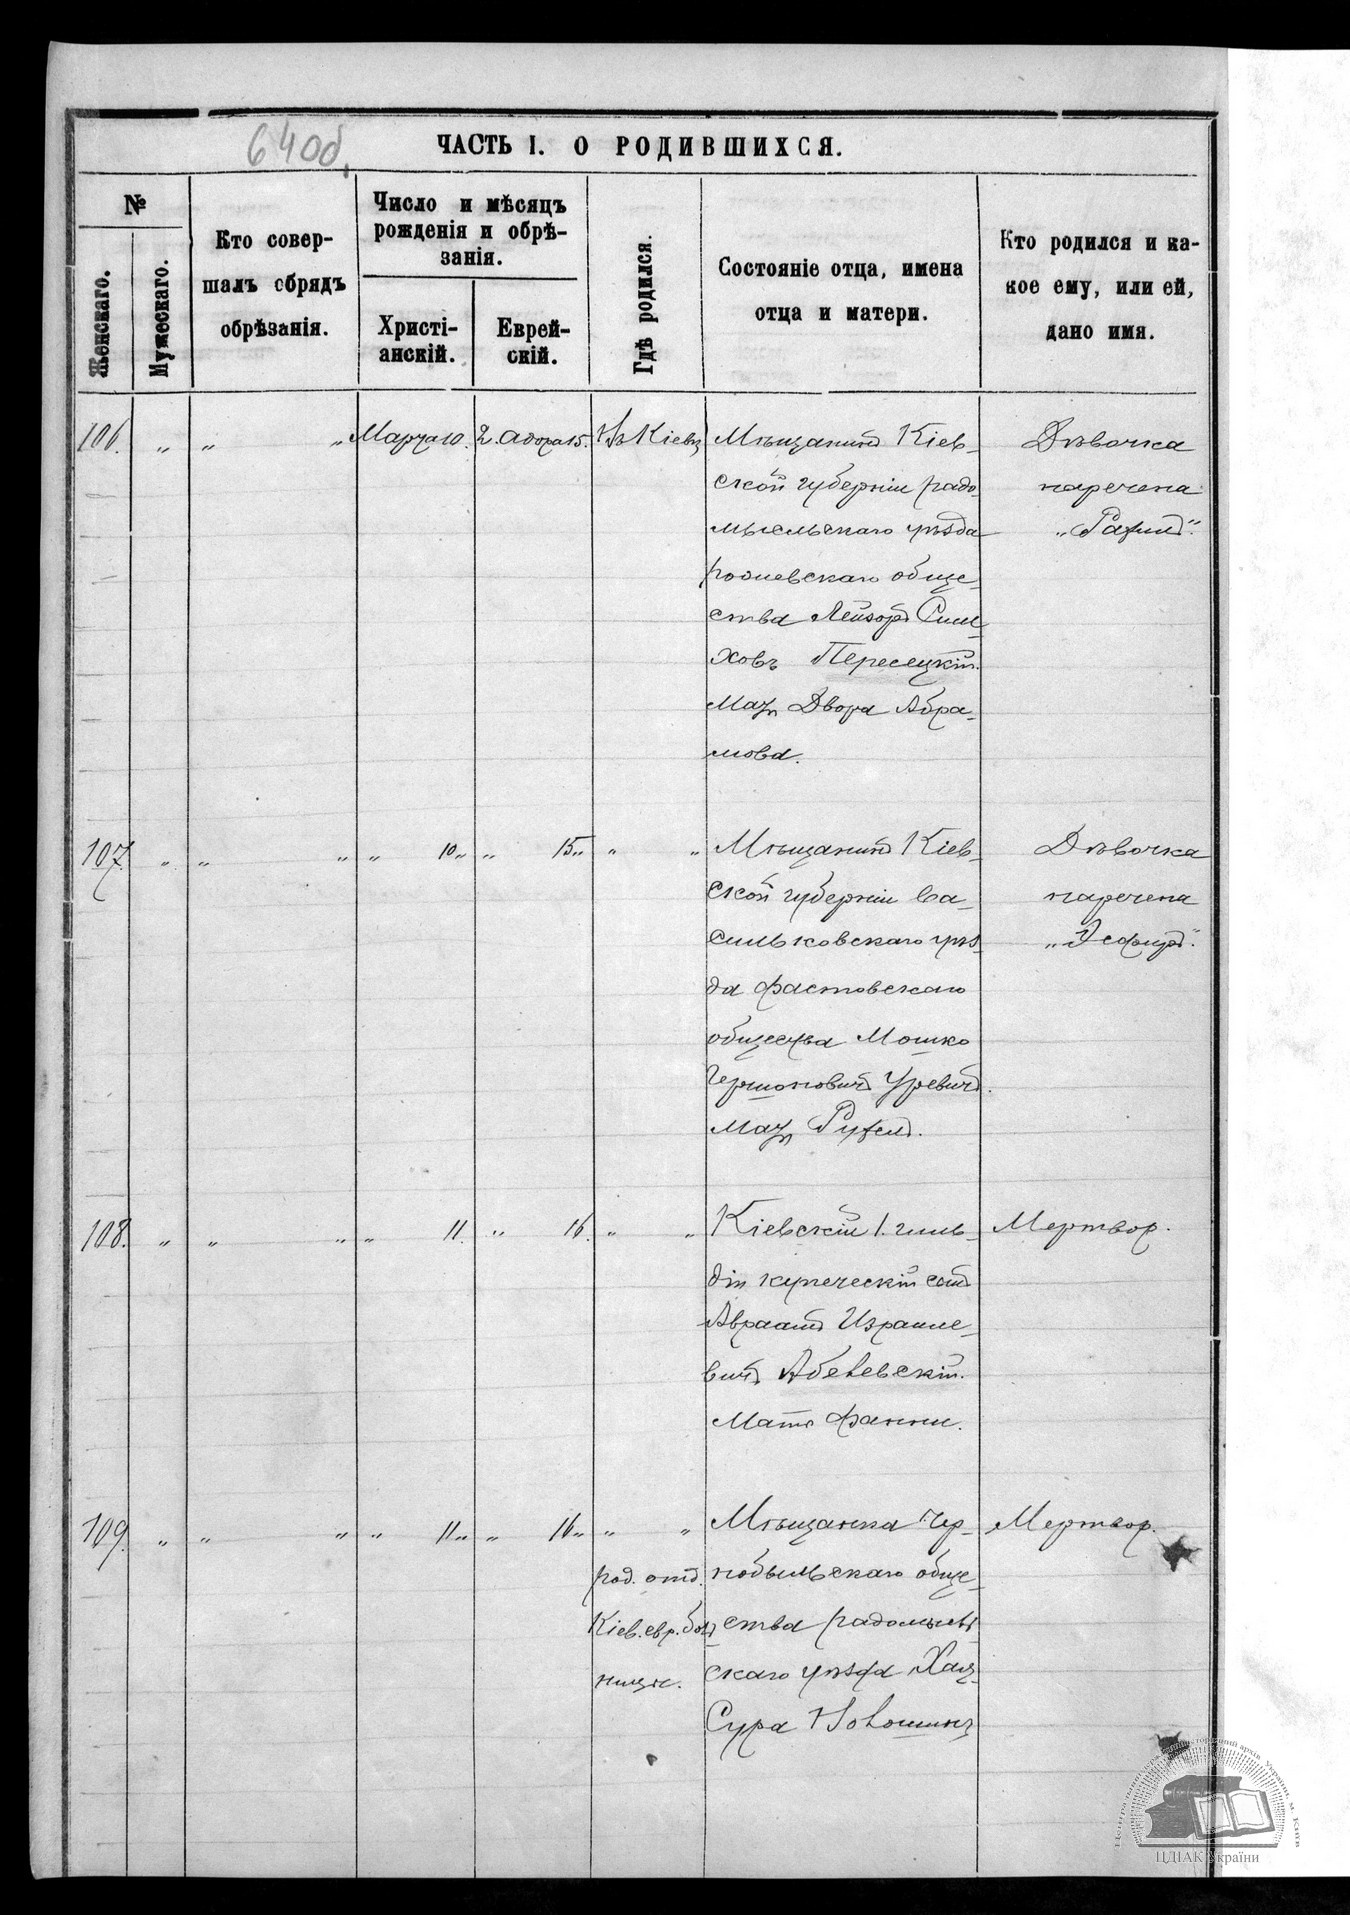 640б.
ЧАСТЬ I. О РОДИВШИХСЯ.
№
Женскаго.
Мужескаго.
Кто совер-
шалъ обрядъ
обрѣзанія.
Число и мѣсяцъ
рожденія и обрѣ-
занія.
Христі-
анскій.
Еврей-
скій.
Гдѣ родился.
Состояніе отца, имена
отца и матери.
Кто родился и ка-
кое ему, или ей,
дано имя.
106. „ „ „ Марта 10. 2. Адора 15. Въ Кіевѣ
Мѣщанинъ Кіев-
ской губерніи радо-
мысльскаго уѣзда
обще-
ства Лейзоръ Сим-
ховъ Пересецкій.
Мать Двора Абра-
мова.
Дѣвочка
наречена
„Рахиль“.
107. „ „ „ „ 10 „ „ 15 „ „ „
Мѣщанинъ Кіев-
ской губерніи Ва-
сильковскаго уѣз-
да фастовскаго
общества Мошко
Гершоновичъ Гуревичъ.
Мать Рухель.
Дѣвочка
наречена
„Эсфирь“.
108. „ „ „ „ 11. „ 16. „ „
Кіевскій 1. гиль-
діи купеческій сынъ
Авраамъ Израиле-
вичъ
Мать Фанни.
Мертвор.
109. „ „ „ „ 11 „ „ 16 „ „ „
род. отд.
Кіев. евр. боль
ницы.
Мѣщанка Чер-
нобыльскаго обще-
ства радомысль
скаго уѣзда Хая
Сура
Мертвор.
ЦДІАК України